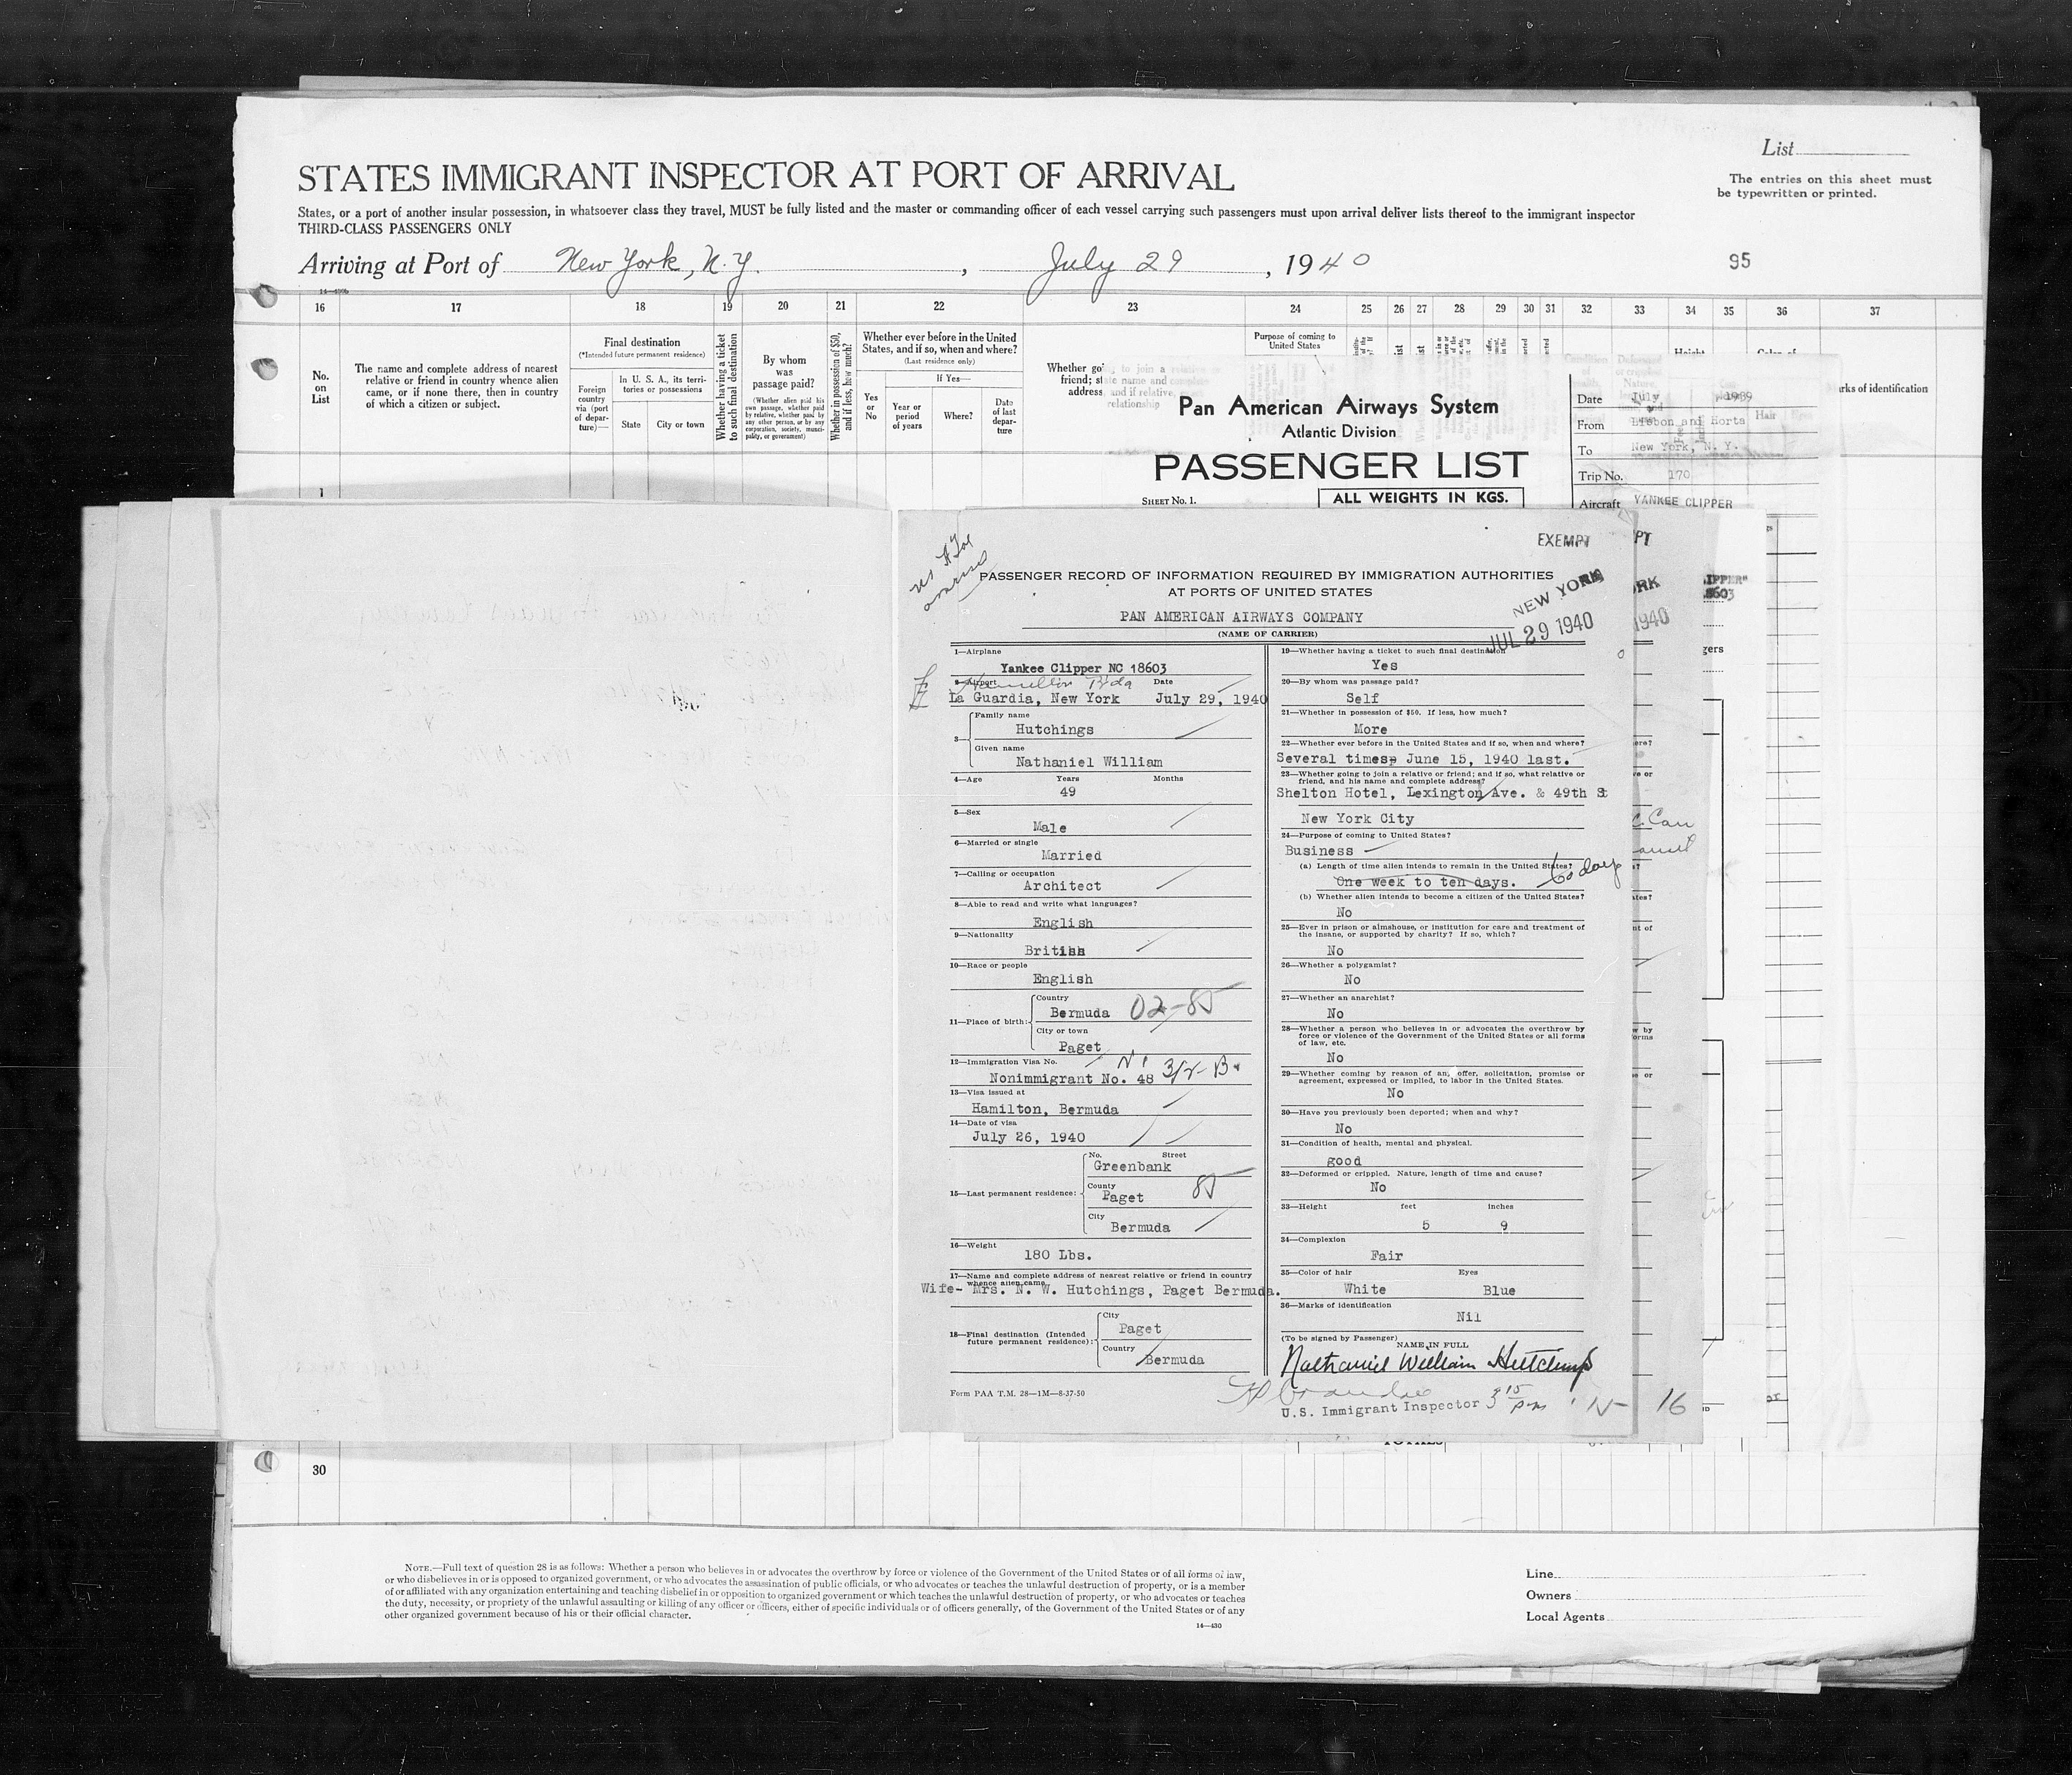 List
The entries on this sheet must
be typewritten or printed.
STATES IMMIGRANT INSPECTOR AT PORT OF ARRIVAL
States, or a port of another insular possession, in whatsoever class they travel, MUST be fully listed and the master or commanding officer of each vessel carrying such passengers must upon arrival deliver lists thereof to the immigrant inspector
THIRD-CLASS PASSENGERS ONLY
Arriving at Port of New York, N.Y. , July 29 , 1940
95
16 17 18 19 20 21 22 23 24 25 26 27 28 29 30 31 32 33 34 35 36 37
No.
on
List
The name and complete address of nearest
relative or friend in country whence alien
came, or if none there, then in country
of which a citizen or subject.
Final destination
(*Intended future permanent residence)
Foreign
country
via (port
of depar-
ture)—
In U. S. A., its terri-
tories or possessions
State
City or town
Whether having a ticket
to such final destination
By whom
was
passage paid?
(Whether alien paid his
own passage, whether paid
by relative, whether paid by
any other person, or by any
corporation, society, munici-
pality, or government)
Whether in possession of $50,
and if less, how much?
Whether ever before in the United
States, and if so, when and where?
(Last residence only)
Yes
or
No
If Yes—
Year or
period
of years
Where?
Date
of last
depar-
ture
Purpose of coming to
United States
Marks of identification
1
Pan American Airways System
Atlantic Division
PASSENGER LIST
SHEET No. 1.
ALL WEIGHTS IN KGS.
Date July
From Lisbon and Horta
To New York, N. Y.
Trip No. 170
Aircraft YANKEE CLIPPER
EXEMPT
PASSENGER RECORD OF INFORMATION REQUIRED BY IMMIGRATION AUTHORITIES
AT PORTS OF UNITED STATES
PAN AMERICAN AIRWAYS COMPANY
(NAME OF CARRIER)
NEW YORK
JUL 29 1940
1—Airplane
Yankee Clipper NC 18603
2—Airport Date
Hamilton Bda
La Guardia, New York July 29, 1940
3—
Family name
Hutchings
Given name
Nathaniel William
4—Age Years Months
49
5—Sex
Male
6—Married or single
Married
7—Calling or occupation
Architect
8—Able to read and write what languages?
English
9—Nationality
British
10—Race or people
English
11—Place of birth:
Country
Bermuda 02-85
City or town
Paget
12—Immigration Visa No.
Nonimmigrant No. 48 3/2-B
13—Visa issued at
Hamilton, Bermuda
14—Date of visa
July 26, 1940
15—Last permanent residence:
No. Street
Greenbank
County
Paget 85
City
Bermuda
16—Weight
180 Lbs.
17—Name and complete address of nearest relative or friend in country
whence alien came
Wife- Mrs. N. W. Hutchings, Paget Bermuda.
18—Final destination (Intended
future permanent residence):
City
Paget
Country
Bermuda
Form PAA T.M. 28—1M—8-37-50
19—Whether having a ticket to such final destination
Yes
20—By whom was passage paid?
Self
21—Whether in possession of $50. If less, how much?
More
22—Whether ever before in the United States and if so, when and where?
Several times, June 15, 1940 last.
23—Whether going to join a relative or friend; and if so, what relative or
friend, and his name and complete address?
Shelton Hotel, Lexington Ave. & 49th St
New York City
24—Purpose of coming to United States?
Business
(a) Length of time alien intends to remain in the United States?
One week to ten days. 60 days
(b) Whether alien intends to become a citizen of the United States?
No
25—Ever in prison or almshouse, or institution for care and treatment of
the insane, or supported by charity? If so, which?
No
26—Whether a polygamist?
No
27—Whether an anarchist?
No
28—Whether a person who believes in or advocates the overthrow by
force or violence of the Government of the United States or all forms
of law, etc.
No
29—Whether coming by reason of an, offer, solicitation, promise or
agreement, expressed or implied, to labor in the United States.
No
30—Have you previously been deported; when and why?
No
31—Condition of health, mental and physical.
good
32—Deformed or crippled. Nature, length of time and cause?
No
33—Height feet inches
5 9
34—Complexion
Fair
35—Color of hair Eyes
White Blue
36—Marks of identification
Nil
(To be signed by Passenger)
NAME IN FULL
Nathaniel William Hutchings
U.S. Immigrant Inspector 3 15 pm
16
30
NOTE.—Full text of question 28 is as follows: Whether a person who believes in or advocates the overthrow by force or violence of the Government of the United States or of all forms of law,
or who disbelieves in or is opposed to organized government, or who advocates the assassination of public officials, or who advocates or teaches the unlawful destruction of property, or is a member
of or affiliated with any organization entertaining and teaching disbelief in or opposition to organized government or which teaches the unlawful destruction of property, or who advocates or teaches
the duty, necessity, or propriety of the unlawful assaulting or killing of any officer or officers, either of specific individuals or of officers generally, of the Government of the United States or of any
other organized government because of his or their official character.
14—430
Line
Owners
Local Agents